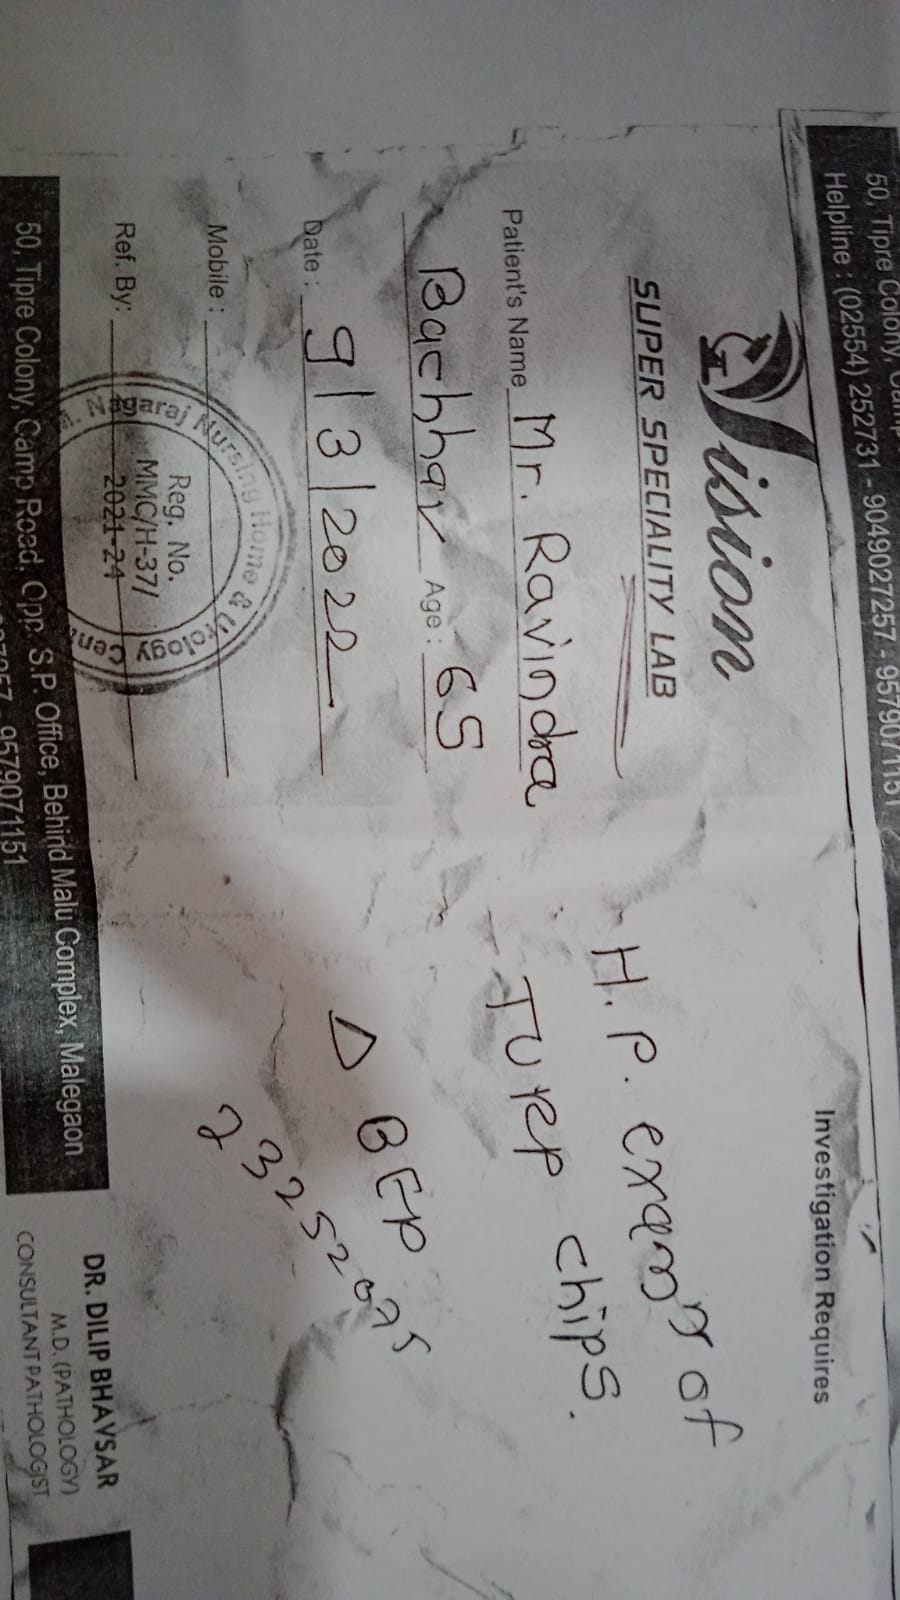 50, Tipre Colony,
Helpline : (02554) 252731 - 9049027257 - 9579071151
Vision
SUPER SPECIALITY LAB
Investigation Requires
Patient's Name Mr. Ravindra
Bachhav Age : 65
Date : 9/3/2022
Mobile :
Ref. By:
Nagaraj Nursing Home & Urology
Reg. No.
MMC/H-37/
2021-24
H. P. exam of
TURP chips.
Δ BEP
DR. DILIP BHAVSAR
M.D. (PATHOLOGY)
CONSULTANT PATHOLOGIST
50, Tipre Colony, Camp Road, Opp. S.P. Office, Behind Malu Complex, Malegaon
9579071151